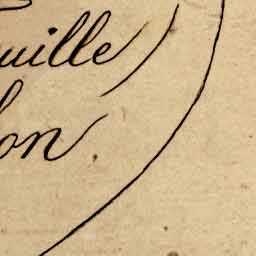 uille)
lon